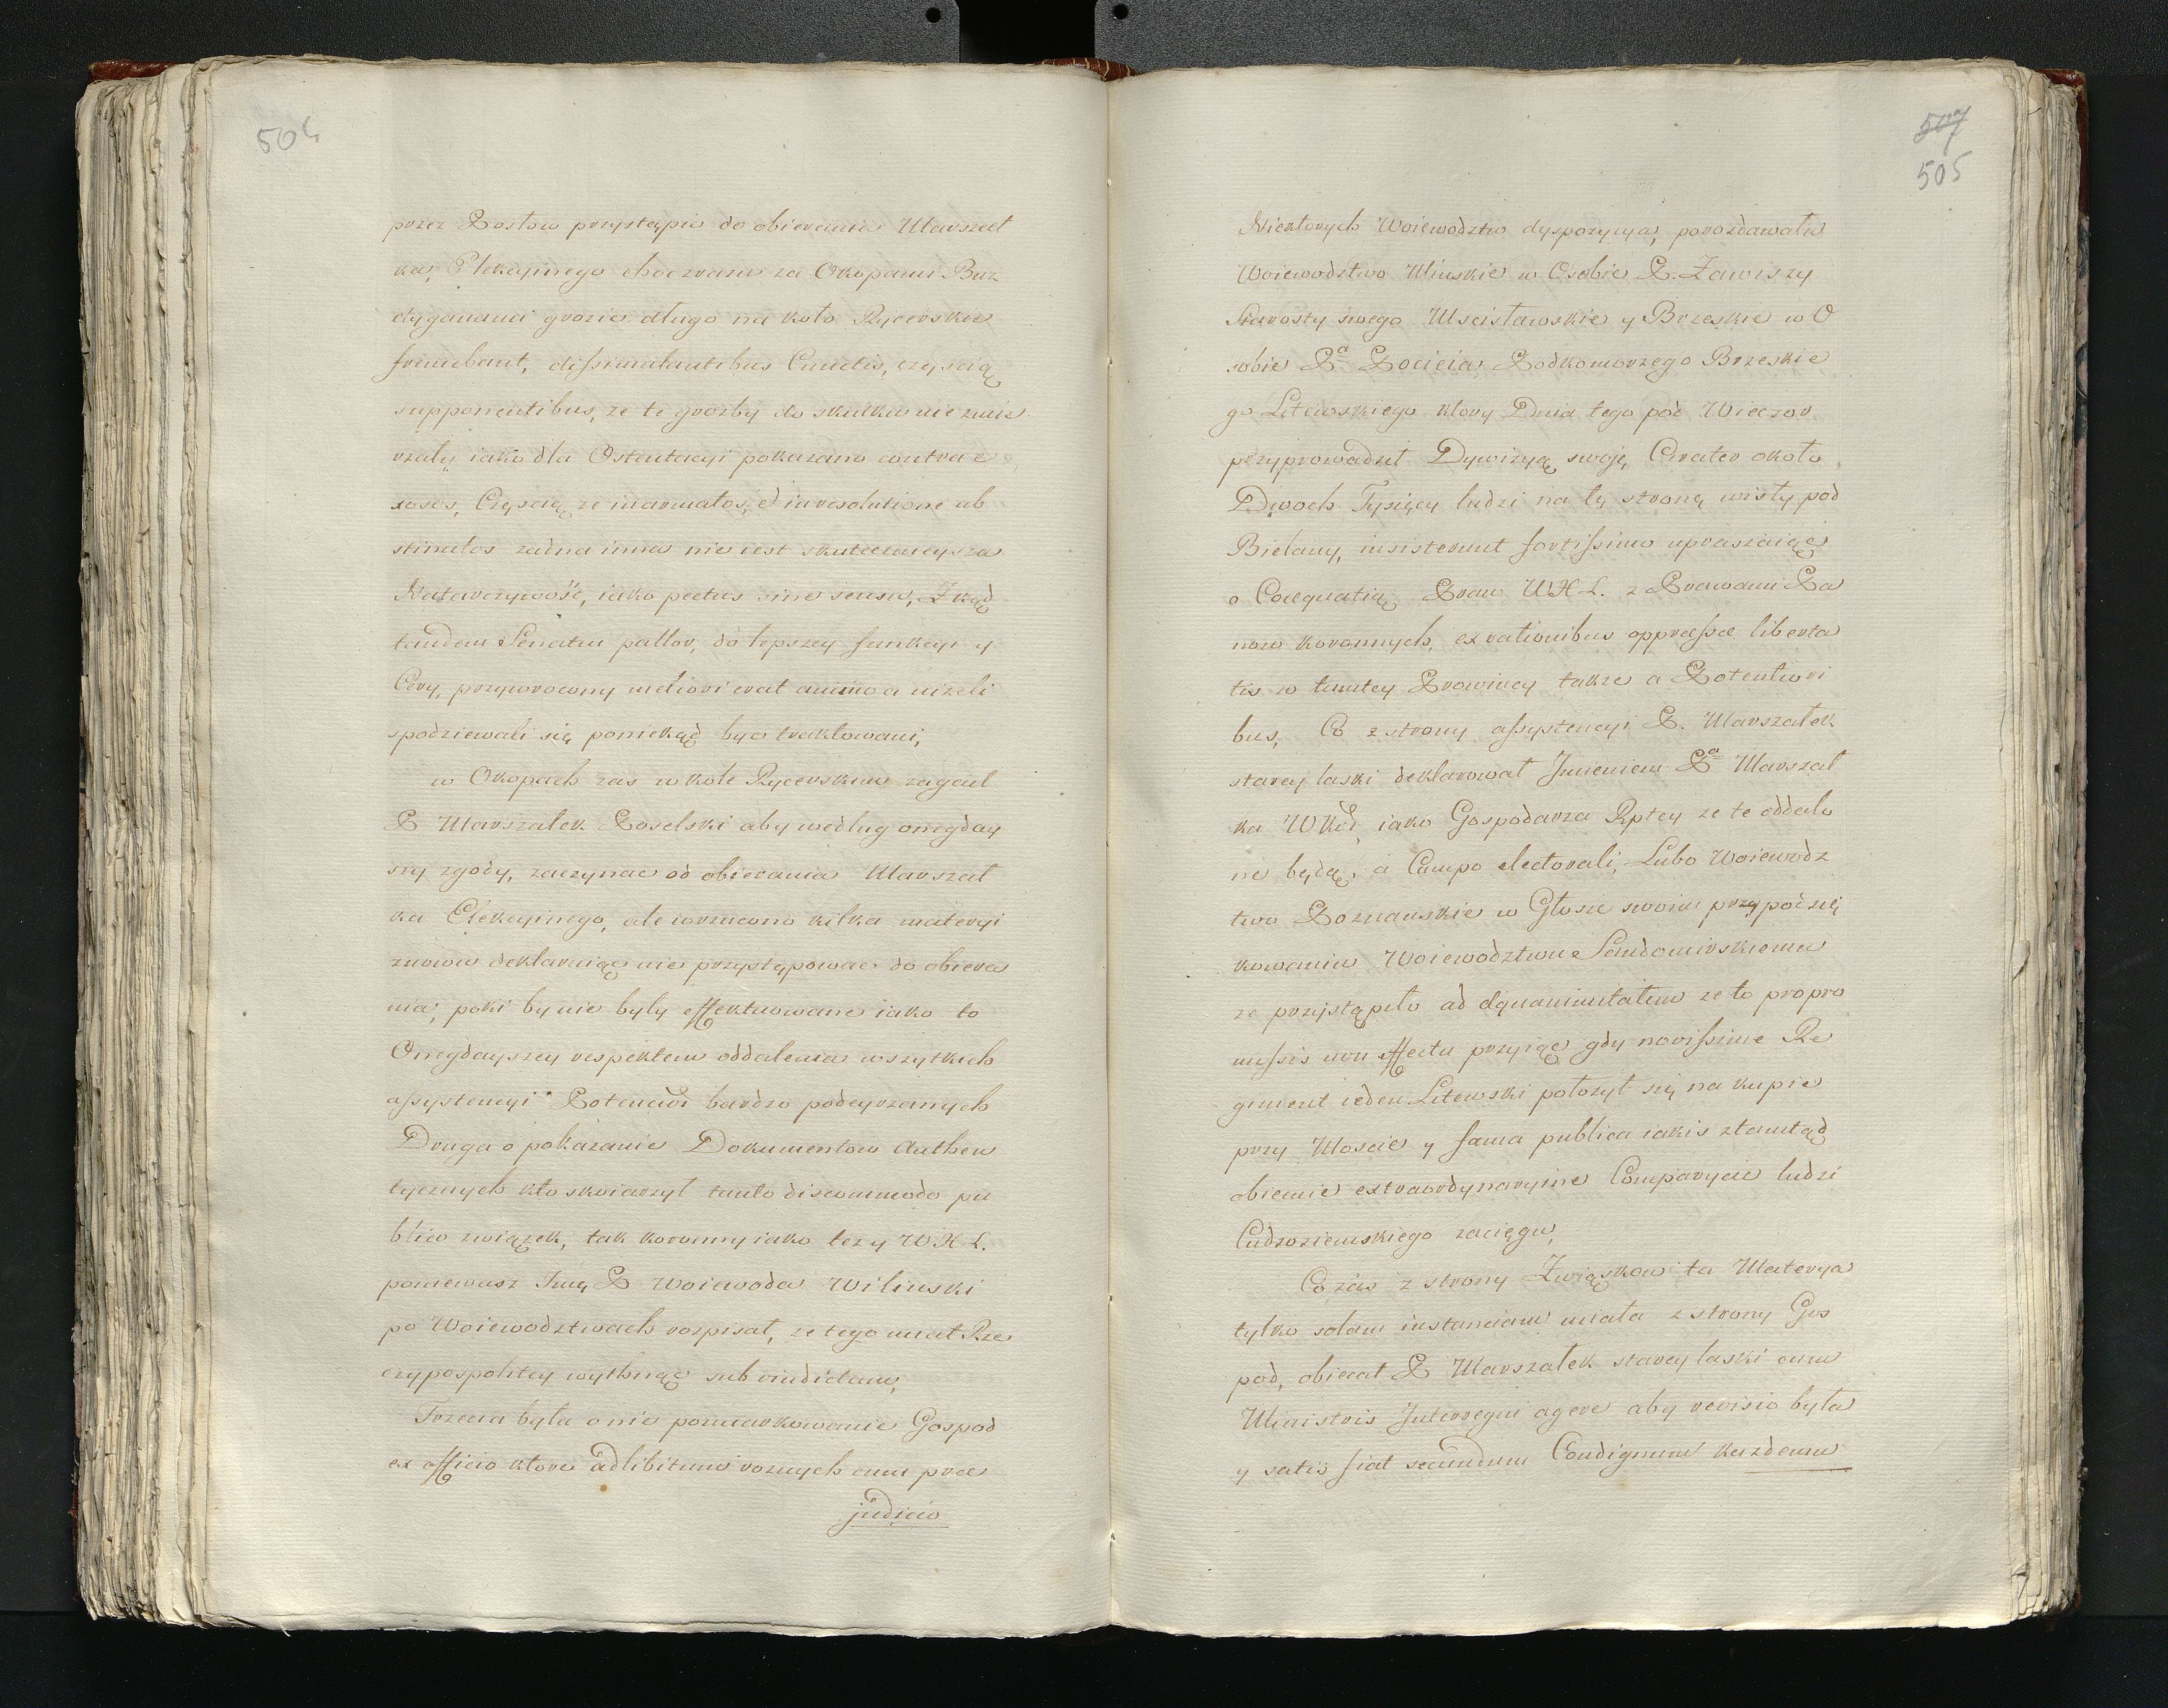 504
przez Posłow przystąpic do obierania Marszał
ka, Elekcyinego choc zrazu za Okopami Buz
dyganami grozic długo na koło Rycerskie
fremebant, dissimulantibus Cunctis, częscią
supponentibus, ze te grozby do skutku nie zmie
rzały iako dla Ostentacyi pokazano contra e
xosos, Częscią ze in armatos, et in resolutione ob
stinatos zadna inna nie iest skutecznieysza
Natarczywość, iako pectus sine sensu, Zkąd
tandem Senatui pallor, do lepszey funkcyi y
Cery, przywrocony meliori erat animo a nizeli
spodziewali się poniekąd byc traktowani,
w Okopach zas w kole Rycerskim zagaił
P Marszałek Poselski aby według onegday
szy zgody, zaczynac od obierania Marszał
ka Elekcyinego, ale wrzucono kilka materyi
znowu deklaruiąc nie przystępowac do obiera
nia, poki by nie były effektuowane iako to
Onegdayszey respektem oddalenia wszytkich
assystencyi Potencwi bardzo podeyrzanych
Druga o pokazanie Dokumentow Authen
tycznych kto skoiarzył tanto discommodo pu
blico związek, tak koronny iako tezy W X L.
poniewasz Imę P Woiewoda Wilinski
po Woiewodztwach rozpisał, ze tego miał Rze
czypospolitey wytknąc sub vindictam,
Trzecia była o nie pomiarkowanie Gospod
ex officio ktore ad libitum roznych cum prae
judicio
507
505
Niektorych Woiewodztw dyspozycya, porozdawała
Woiewodztwo Minskie w Osobie P. Zawiszy
Starosty swego Mscisławskie y Brzeskie w O
sobie Pa Pocieia Podkomorzego Brzeskie
go Litewskiego ktory Dnia tego pod Wieczor
przyprowadził Dywizyą swoję Crater około
Dwoch Tysięcy ludzi na tę stronę wisły pod
Bielany, insisterunt fortissimo upraszaiąc
o Coaequatią Praw W X L. z Prawami Pa
now koronnych, ex rationibus oppressae liberta
tis w tamtey Prowincy takze a Potentiori
bus, Co z strony assystencyi P. Marszałek
starey laski deklarował Imieniem Pa Marszał
ka W Kor, iako Gospodarza Rptey ze te oddalo
ne będą, a Campo electorali, Lubo Woiewodz
two Poznanskie w Głosie swoim przy podzię
kowaniu Woiewodztwu Sandomirskiemu
ze przystąpiło ad equanimitatem ze to pro pro
missis non effectu przyiąc gdy novissime Re
giment ieden Litewski połozył się na kupie
przy Moscie y fama publica iakis ztamtąd
obiemie extraordynaryine Comparycie ludzi
Cudzoziemskiego zacięgu,
Co zas z strony Związkow ta Materya
tylko solam instanciam miała z strony Gos
pod, obiecał P Marszałek starey laski cum
Ministris Interregni agere aby revisio była
y satis fiat secundum Condignum kazdemu